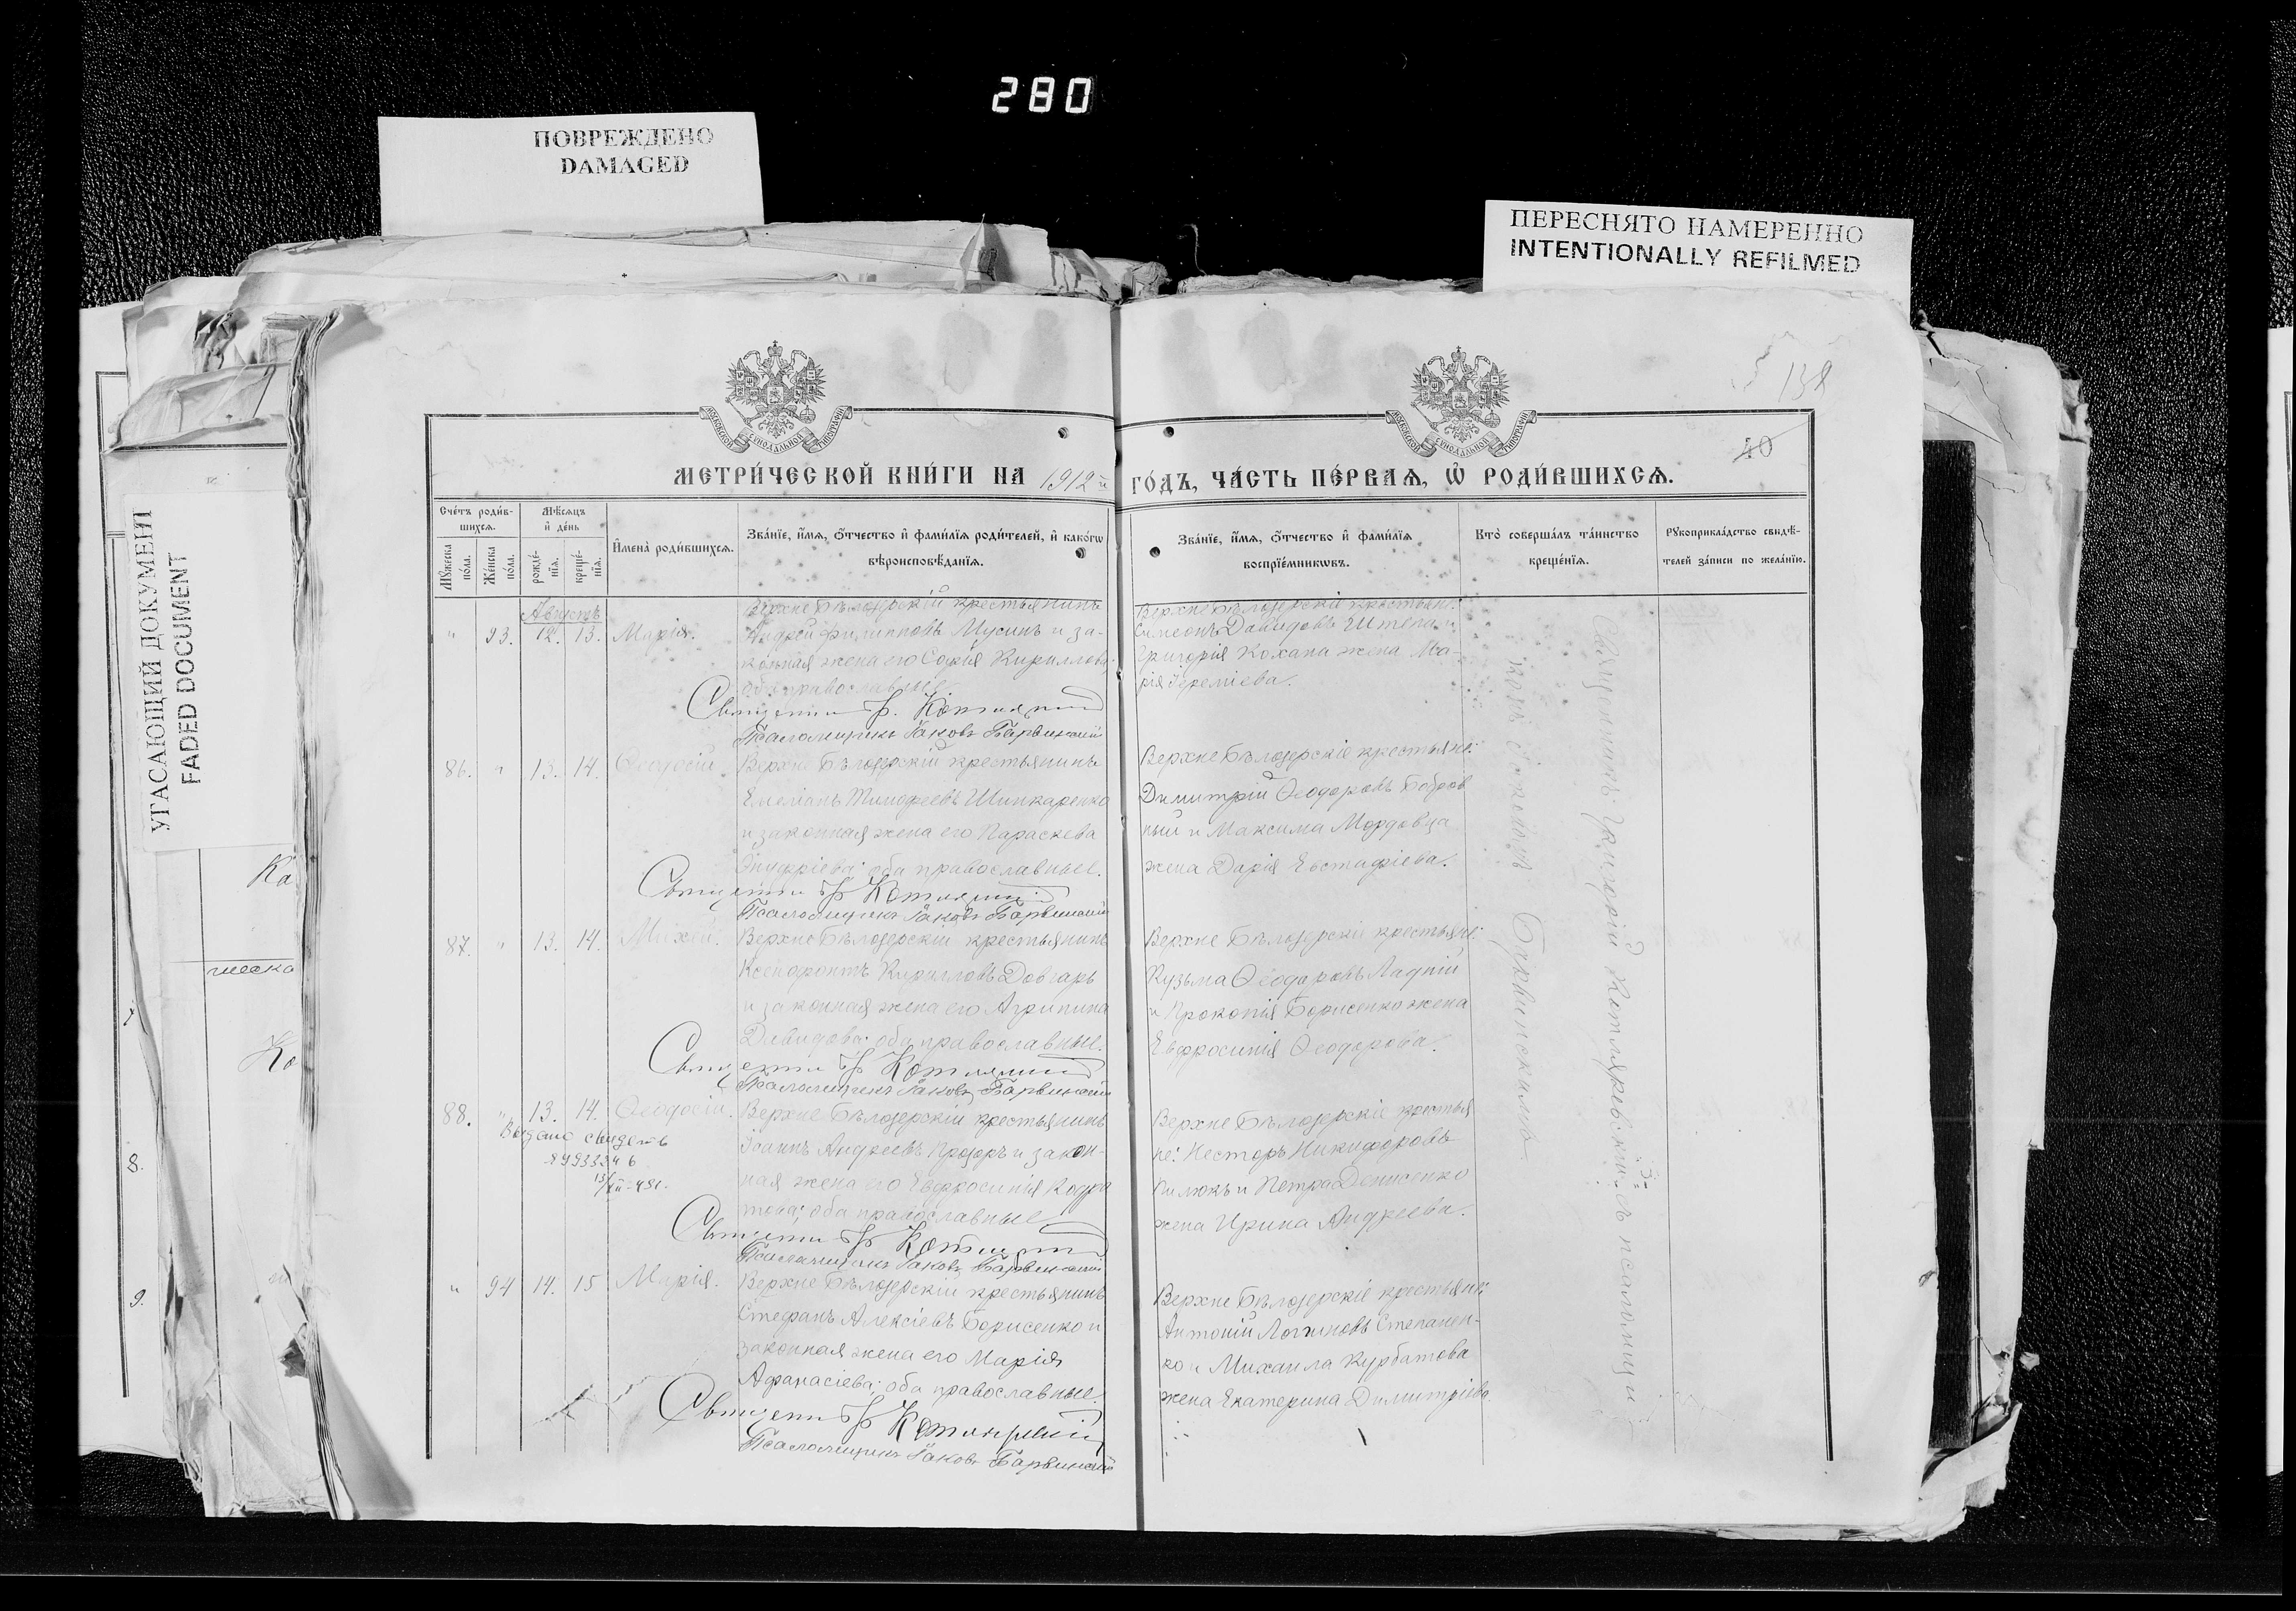 280
ПОВРЕЖДЕНО
DAMAGED
ПЕРЕСНЯТО НАМЕРЕННО
INTENTIONALLY REFILMED
УГАСАЮЩИЙ ДОКУМЕНТ
FADED DOCUMENT
138
40
МЕТРИ́ЧЕСКОЙ КНИ́ГИ НА 1912 й ГО́ДЪ, ЧА́СТЬ ПЕ́РВАѦ, Ѡ҆ РОДИ́ВШИХСѦ.
Сче́тъ роди́в-
шихсѧ.
Мꙋ́жеска по́ла.
Же́нска по́ла.
Мѣ́сѧцъ
и҆ де́нь
рожде́-
нїѧ.
креще́-
нїѧ.
И҆мена̀ роди́вшихсѧ.
Зва́нїе, и҆́мѧ, ѻ҆́тчество и҆ фами́лїѧ роди́телей, и҆ како́гѡ
вѣроисповѣ́данїѧ.
Зва́нїе, и҆́мѧ, ѻ҆́тчество и҆ фами́лїѧ
воспрїе́мникѡвъ.
Кто̀ соверша́лъ та́инство
креще́нїѧ.
Рꙋкоприкла́дство свидѣ́-
телей за́писи по жела́нїю.
Августъ
" 93. 12. 13. Марія.
Верхне Бѣлозерскій крестьянинъ
Андрей Филипповъ Мусинъ и за-
конная жена его Софія Кириллова;
оба православные
Священникъ Гр. Котляревскій
Псаломщикъ Іаковъ Барвинскій
Верхне Бѣлозерскіе крестьяне:
Симеонъ Давидовъ Штепа и
Григорія Кохана жена Ма-
рія Іереміева.
86. " 13. 14. Ѳеодосій
Верхне Бѣлозерскій крестьянинъ
Емеліанъ Тимофеевъ Шинкаренко
и законная жена его Параскева
Онуфріева; оба православные.
Священникъ Гр Котляревскій
Псаломщикъ Іаковъ Барвинскій
Верхне Бѣлозерскіе крестьяне:
Димитрій Ѳеодоровъ Бобров
ный и Максима Мордовца
жена Дарія Евстафіева.
87. " 13. 14. Михей.
Верхне Бѣлозерскій крестьянинъ
Ксенофонтъ Кирилловъ Довгарь
и законная жена его Агрипина
Давидова; оба православные.
Священникъ Гр Котляревскій
Псаломщикъ Іаковъ Барвинскій
Верхне Бѣлозерскіе крестьяне:
Кузьма Ѳеодоровъ Ладній
и Прокопія Борисенко жена
Евфросинія Ѳеодорова.
88. " 13. 14. Ѳеодосій.
Верхне Бѣлозерскій крестьянинъ
Іоаннъ Андреевъ Прозоръ и закон-
ная жена его Евфросинія Кодра
това; оба православные
Священникъ Гр Котляревскій
Псаломщикъ Іаковъ Барвинскій
Верхне Бѣлозерскіе крестья
не: Несторъ Никифоровъ
Пилюкъ и Петра Денисенко
жена Ирина Андреева.
" 94 14. 15 Марія.
Верхне Бѣлозерскій крестьянинъ
Стефанъ Алексіевъ Борисенко и
законная жена его Марія
Афанасіева; оба православные.
Священникъ Гр Котляревскій
Псаломщикъ Іаковъ Барвинскій
Верхне Бѣлозерскіе крестьяне:
Антоній Логиновъ Степанен-
ко и Михаила Курбатова
жена Екатерина Димитріева.
Священникъ Григорій Котляревскій съ псаломщи
комъ Іаковомъ Барвинскимъ